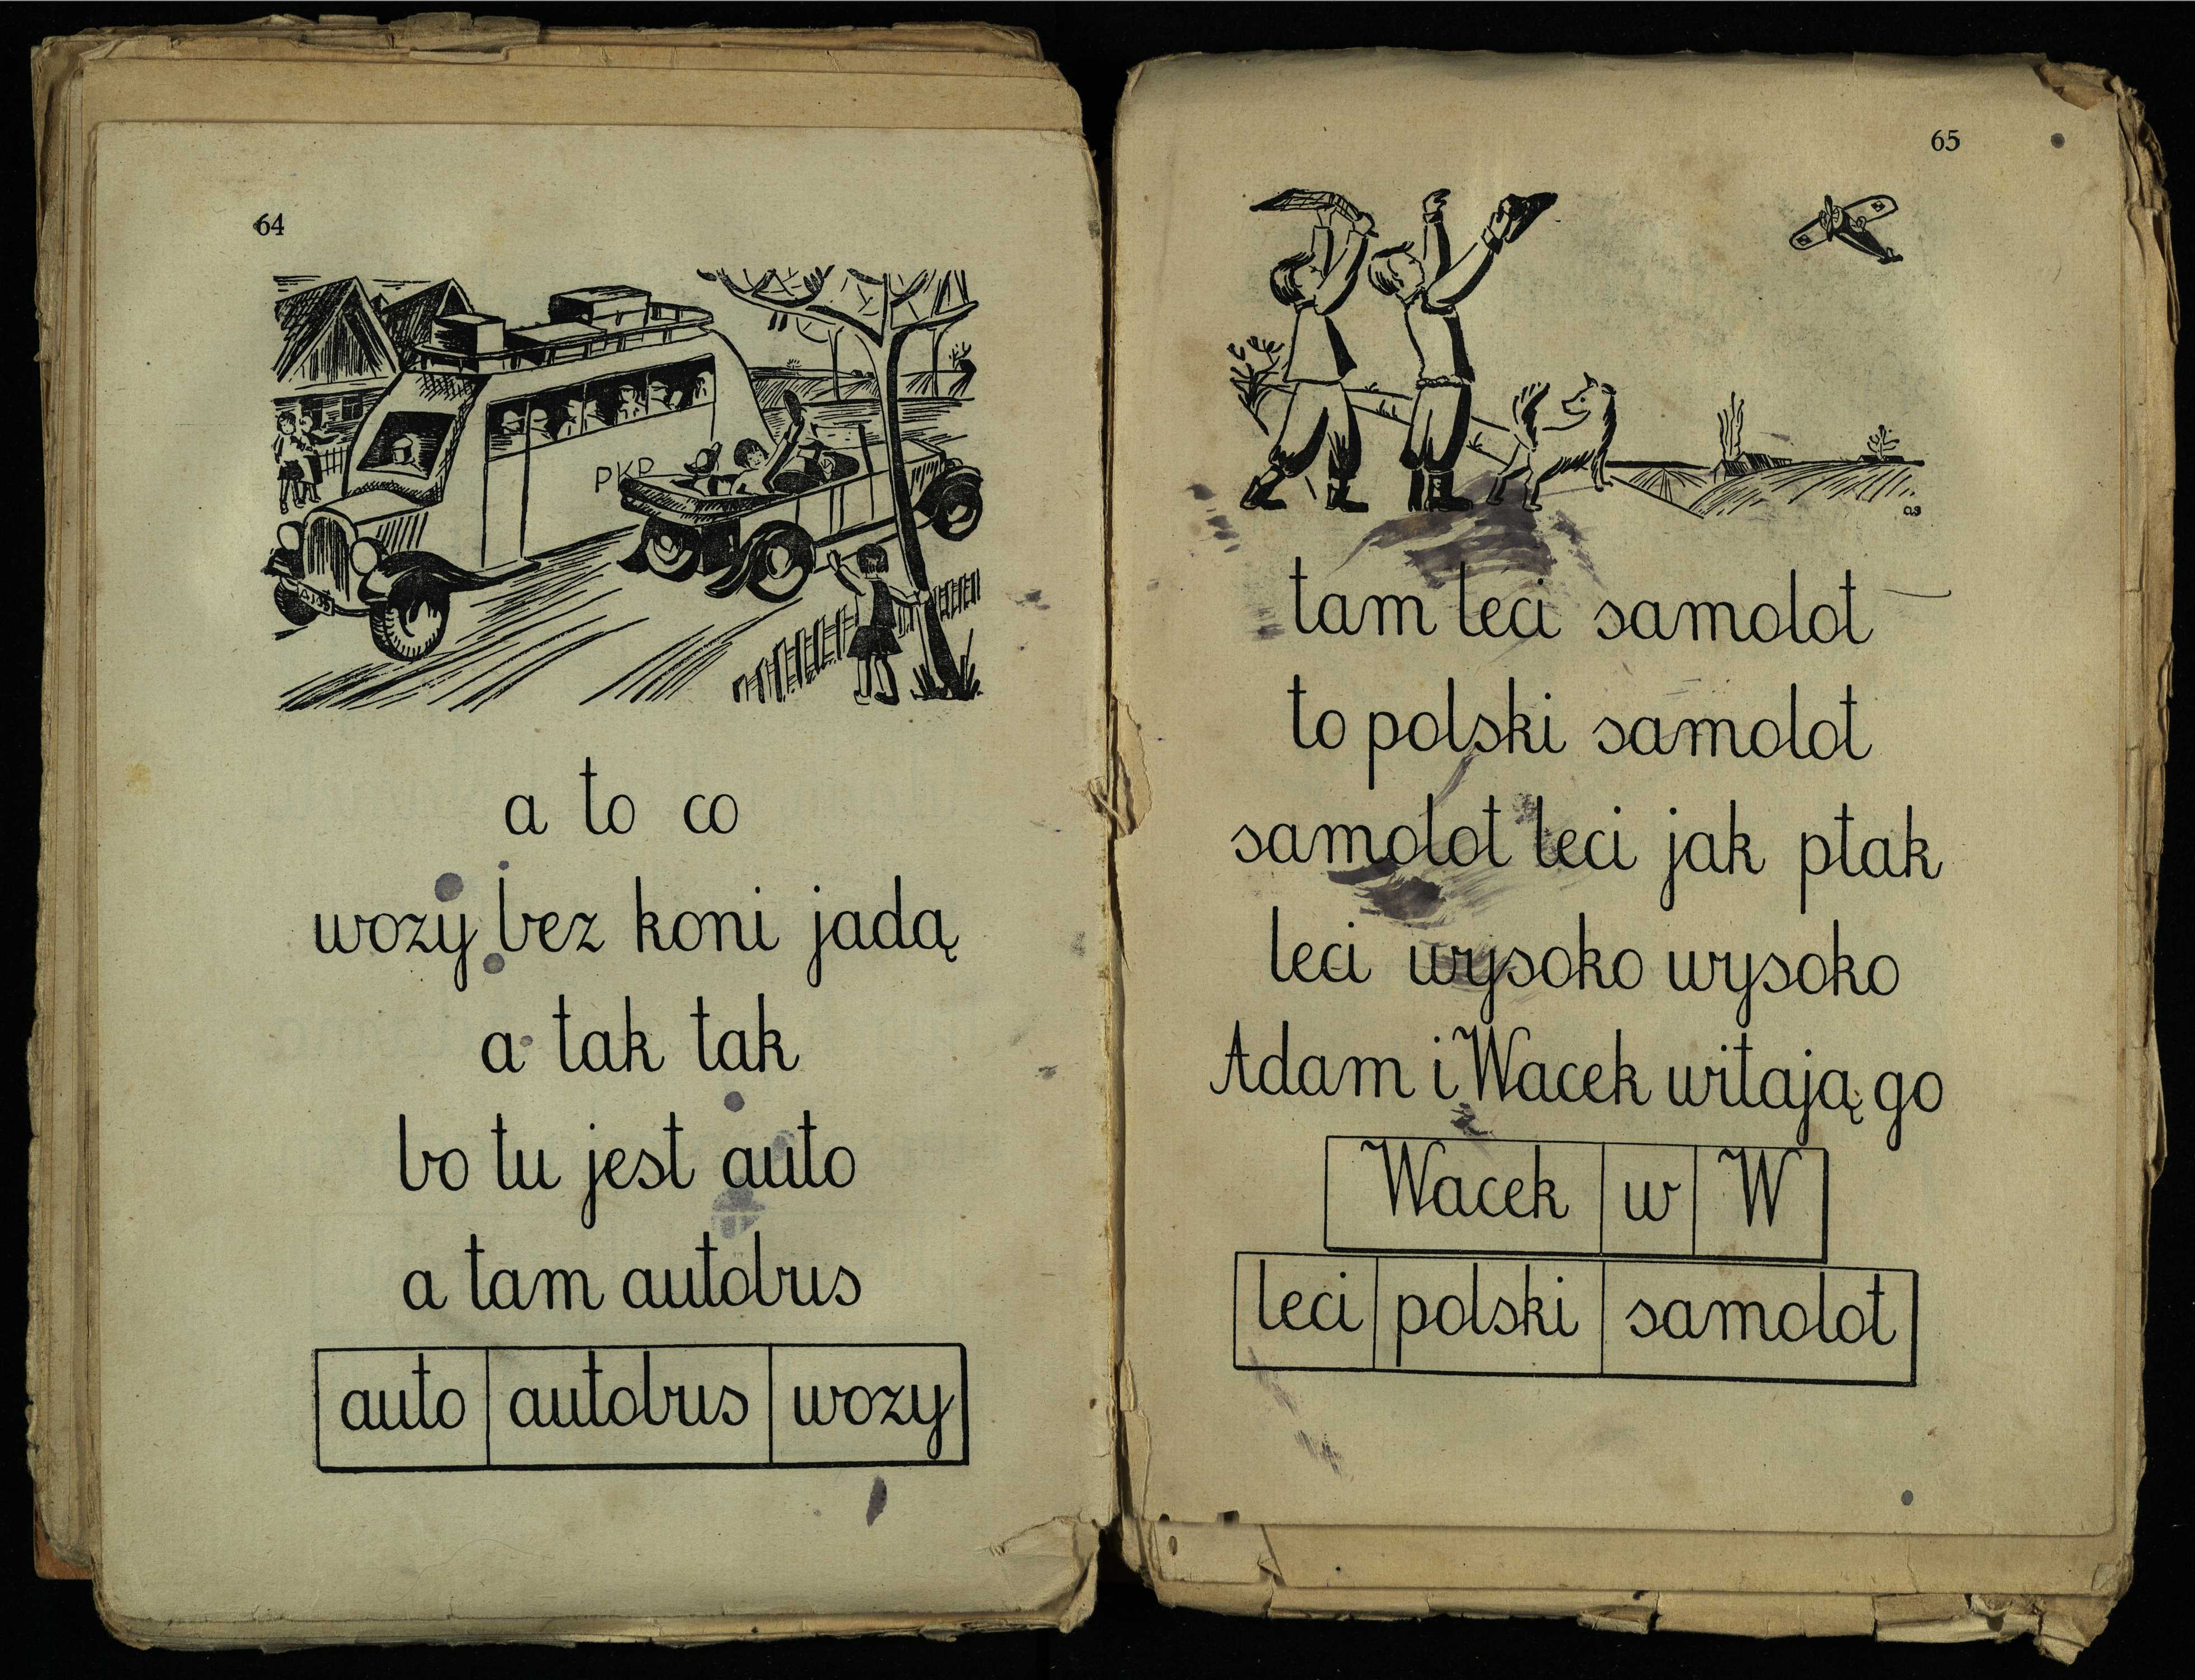 64
PKP
a to co
wozy bez koni jadą
a tak tak
bo tu jest auto
a tam autobus
auto autobus wozy
65
tam leci samolot
to polski samolot
samolot leci jak ptak
leci wysoko wysoko
Adam i Wacek witają go
Wacek w W
leci polski samolot